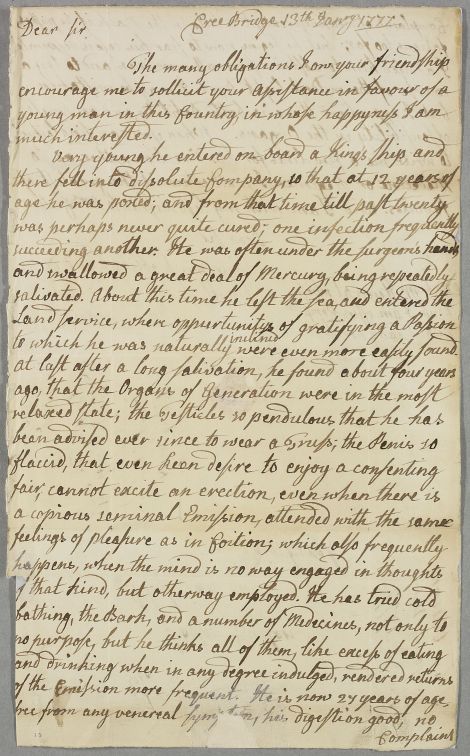 Cree Bridge 13th Janry 1777.
Dear Sir
The many obligations I ow your friendship
encourage me to sollicit your assistance in favour of a
young man in this Country, in whose happyness I am
much interested.
Very young, he entered on board a Kings ship and
there fell into dissolute Company, so that at 12 years of
age he was poxed; and from that time till past twenty
was perhaps never quite cured; one infection frequently
succeeding another. He was often under the surgeons hands
and swallowed a great deal of Mercury, being repeatedly
salivated. About this time he left the sea, and entered the
Land service, when oppurtunitys of gratifying a Passion
to which he was naturally inclined were even more easily found.
at last after a long salivation, he found about four years
ago, that the Organs of Generation were in the most
relaxed state; the Testicles so pendulous that he has
been advised ever since to wear a Truss; the Penis so
flaccid, that even kean desire to enjoy a consenting
fair, cannot excite an erection, even when there is
a copious seminal Emission, attended with the same
feelings of pleasure as in Coition; which also frequently
happens, when the mind is no way engaged in thoughts
of that kind, but otherway employed. He has tried cold
bathing, the Bark, and a number of Medecines, not only to
no purpose, but he thinks all of them, like excess of eating
and drinking when in any degree indulged, rendered returns
of the Emission more frequent. He is now 27 years of age
free from any venereal symptom, his digestion good, no
Complaint